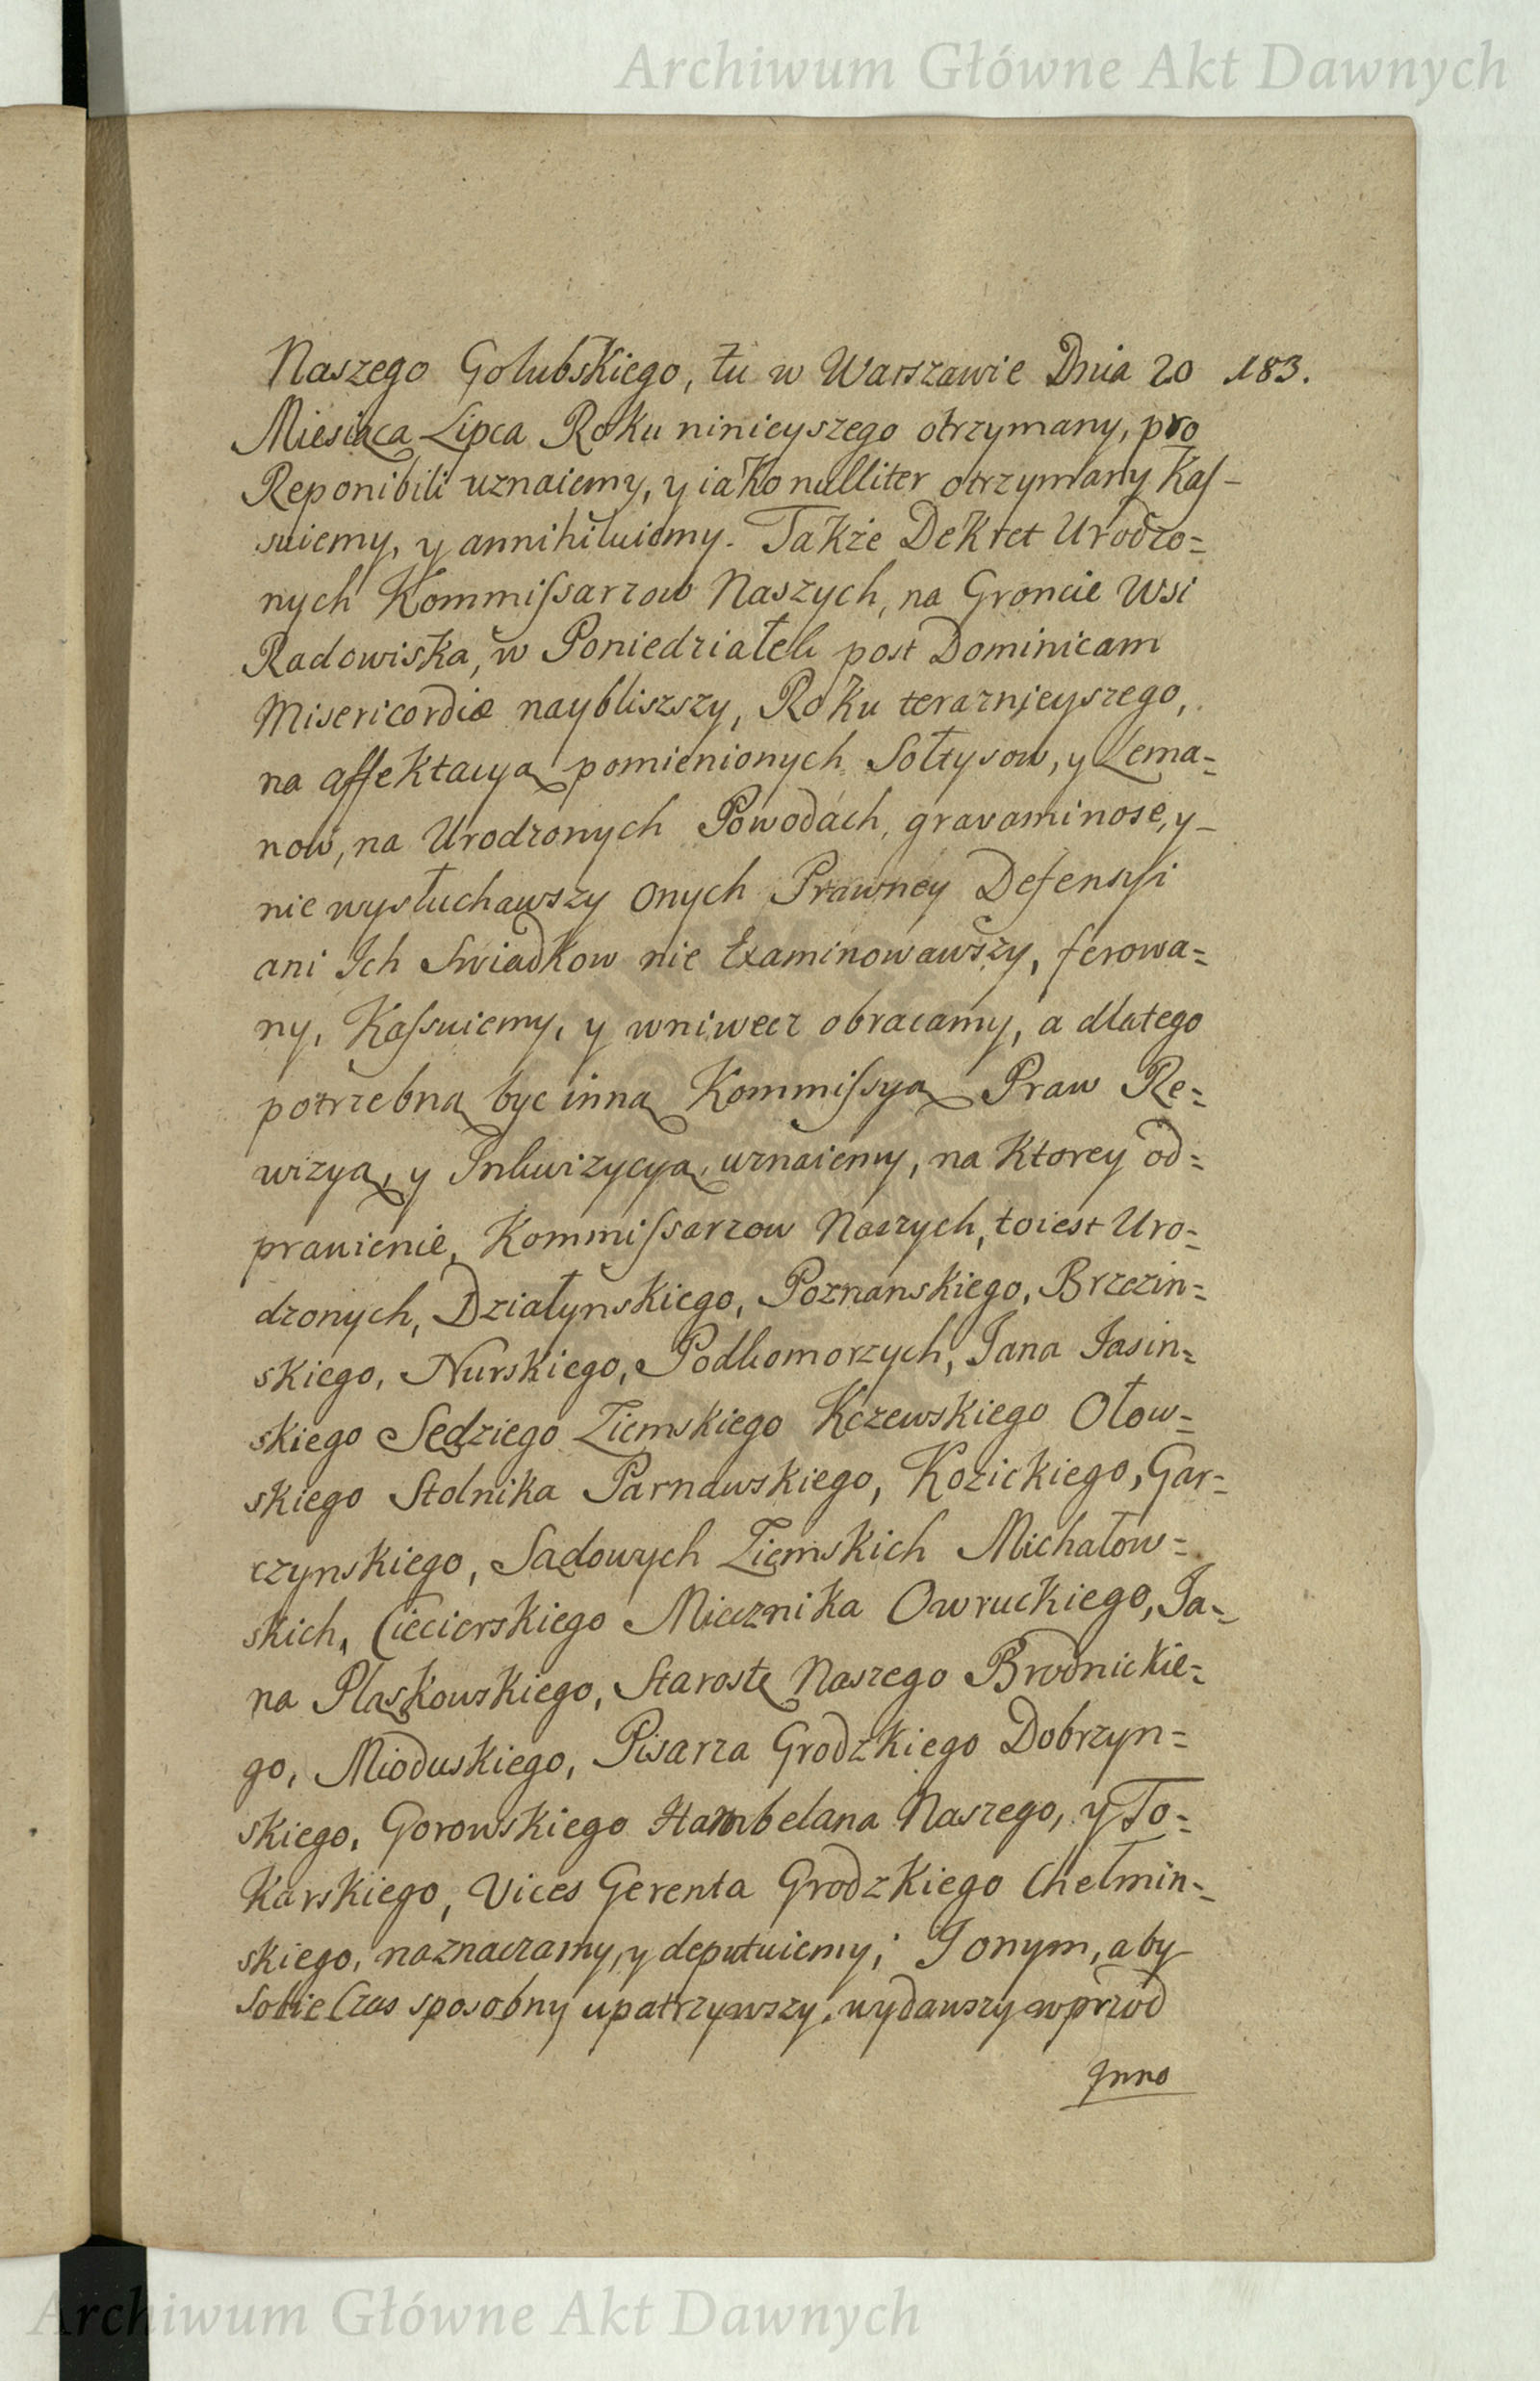 Archiwum Główne Akt Dawnych
Naszego Golubskiego, tu w Warszawie Dnia 20 183.
Miesiąca Lipca Roku ninieyszego otrzymany, pro
Reponibili uznaiemy, y iako nulliter otrzymany Kaſ-
suiemy, y annihiluiemy. Także Dekret Urodzo=
nych Kommiſsarzow Naszych, na Groncie Wsi
Radowiska, w Poniedziałek post Dominicam
Misericordiæ naybliszszy, Roku teraznieyszego,
na affektacyą pomienionych Sołtysow, y Lema=
now, na Urodzonych Powodach, gravaminose, y
nie wysłuchawszy onych Prawney Defensyi
ani Ich Swiadkow nie Examinowawszy, ferowa=
ny, Kaſsuiemy, y wniwecz obracamy, a dlatego
potrzebną byc inną Kommiſsyą Praw Re=
wizyą, y Inkwizycyą uznaiemy, na Ktorey od=
prawienie, Kommiſsarzow Naszych, toiest Uro=
dzonych, Działynskiego, Poznanskiego, Brzezin=
skiego, Nurskiego, Podkomorzych, Jana Jasin=
skiego Sędziego Ziemskiego Kczewskiego Ołow=
skiego Stolnika Parnawskiego, Kozickiego, Gar=
czynskiego, Sądowych Ziemskich Michałow=
skich, Ciecierskiego Miecznika Owruckiego, Ja=
na Pląskowskiego, Starostę Naszego Brodnickie=
go, Mioduskiego, Pisarza Grodzkiego Dobrzyn=
skiego, Gorowskiego Hambelana Naszego, y To=
karskiego, Vices Gerenta Grodzkiego Chełmin=
skiego, naznaczamy, y deputuiemy; I onym, aby
sobie Czas sposobny upatrzywszy, wydawszy wprzod
Inno
Archiwum Główne Akt Dawnych